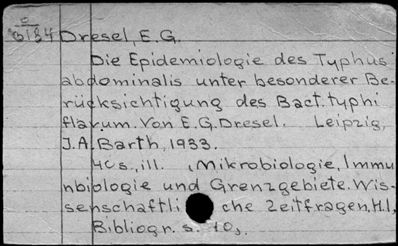 c
5134 Dresel, E.G.
Die Epidemiologie des Typhus
abdominalis unter besonderer Be-
rücksichtigung des Bact. typhi
flavum. Von E.G. Dresel. Leipzig,
J.A. Barth, 1933.
40 s., ill. (Mikrobiologie, Immu
nbiologie und Grenzgebiete. Wis-
senschaftli che Zeitfragen. H.1,
Bibliogr. s. 10,.